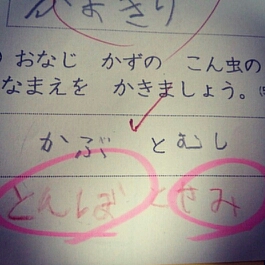 おなじ かずの こん虫の
なまえを かきましょう。
かぶ と むし
とんぼ と せみ